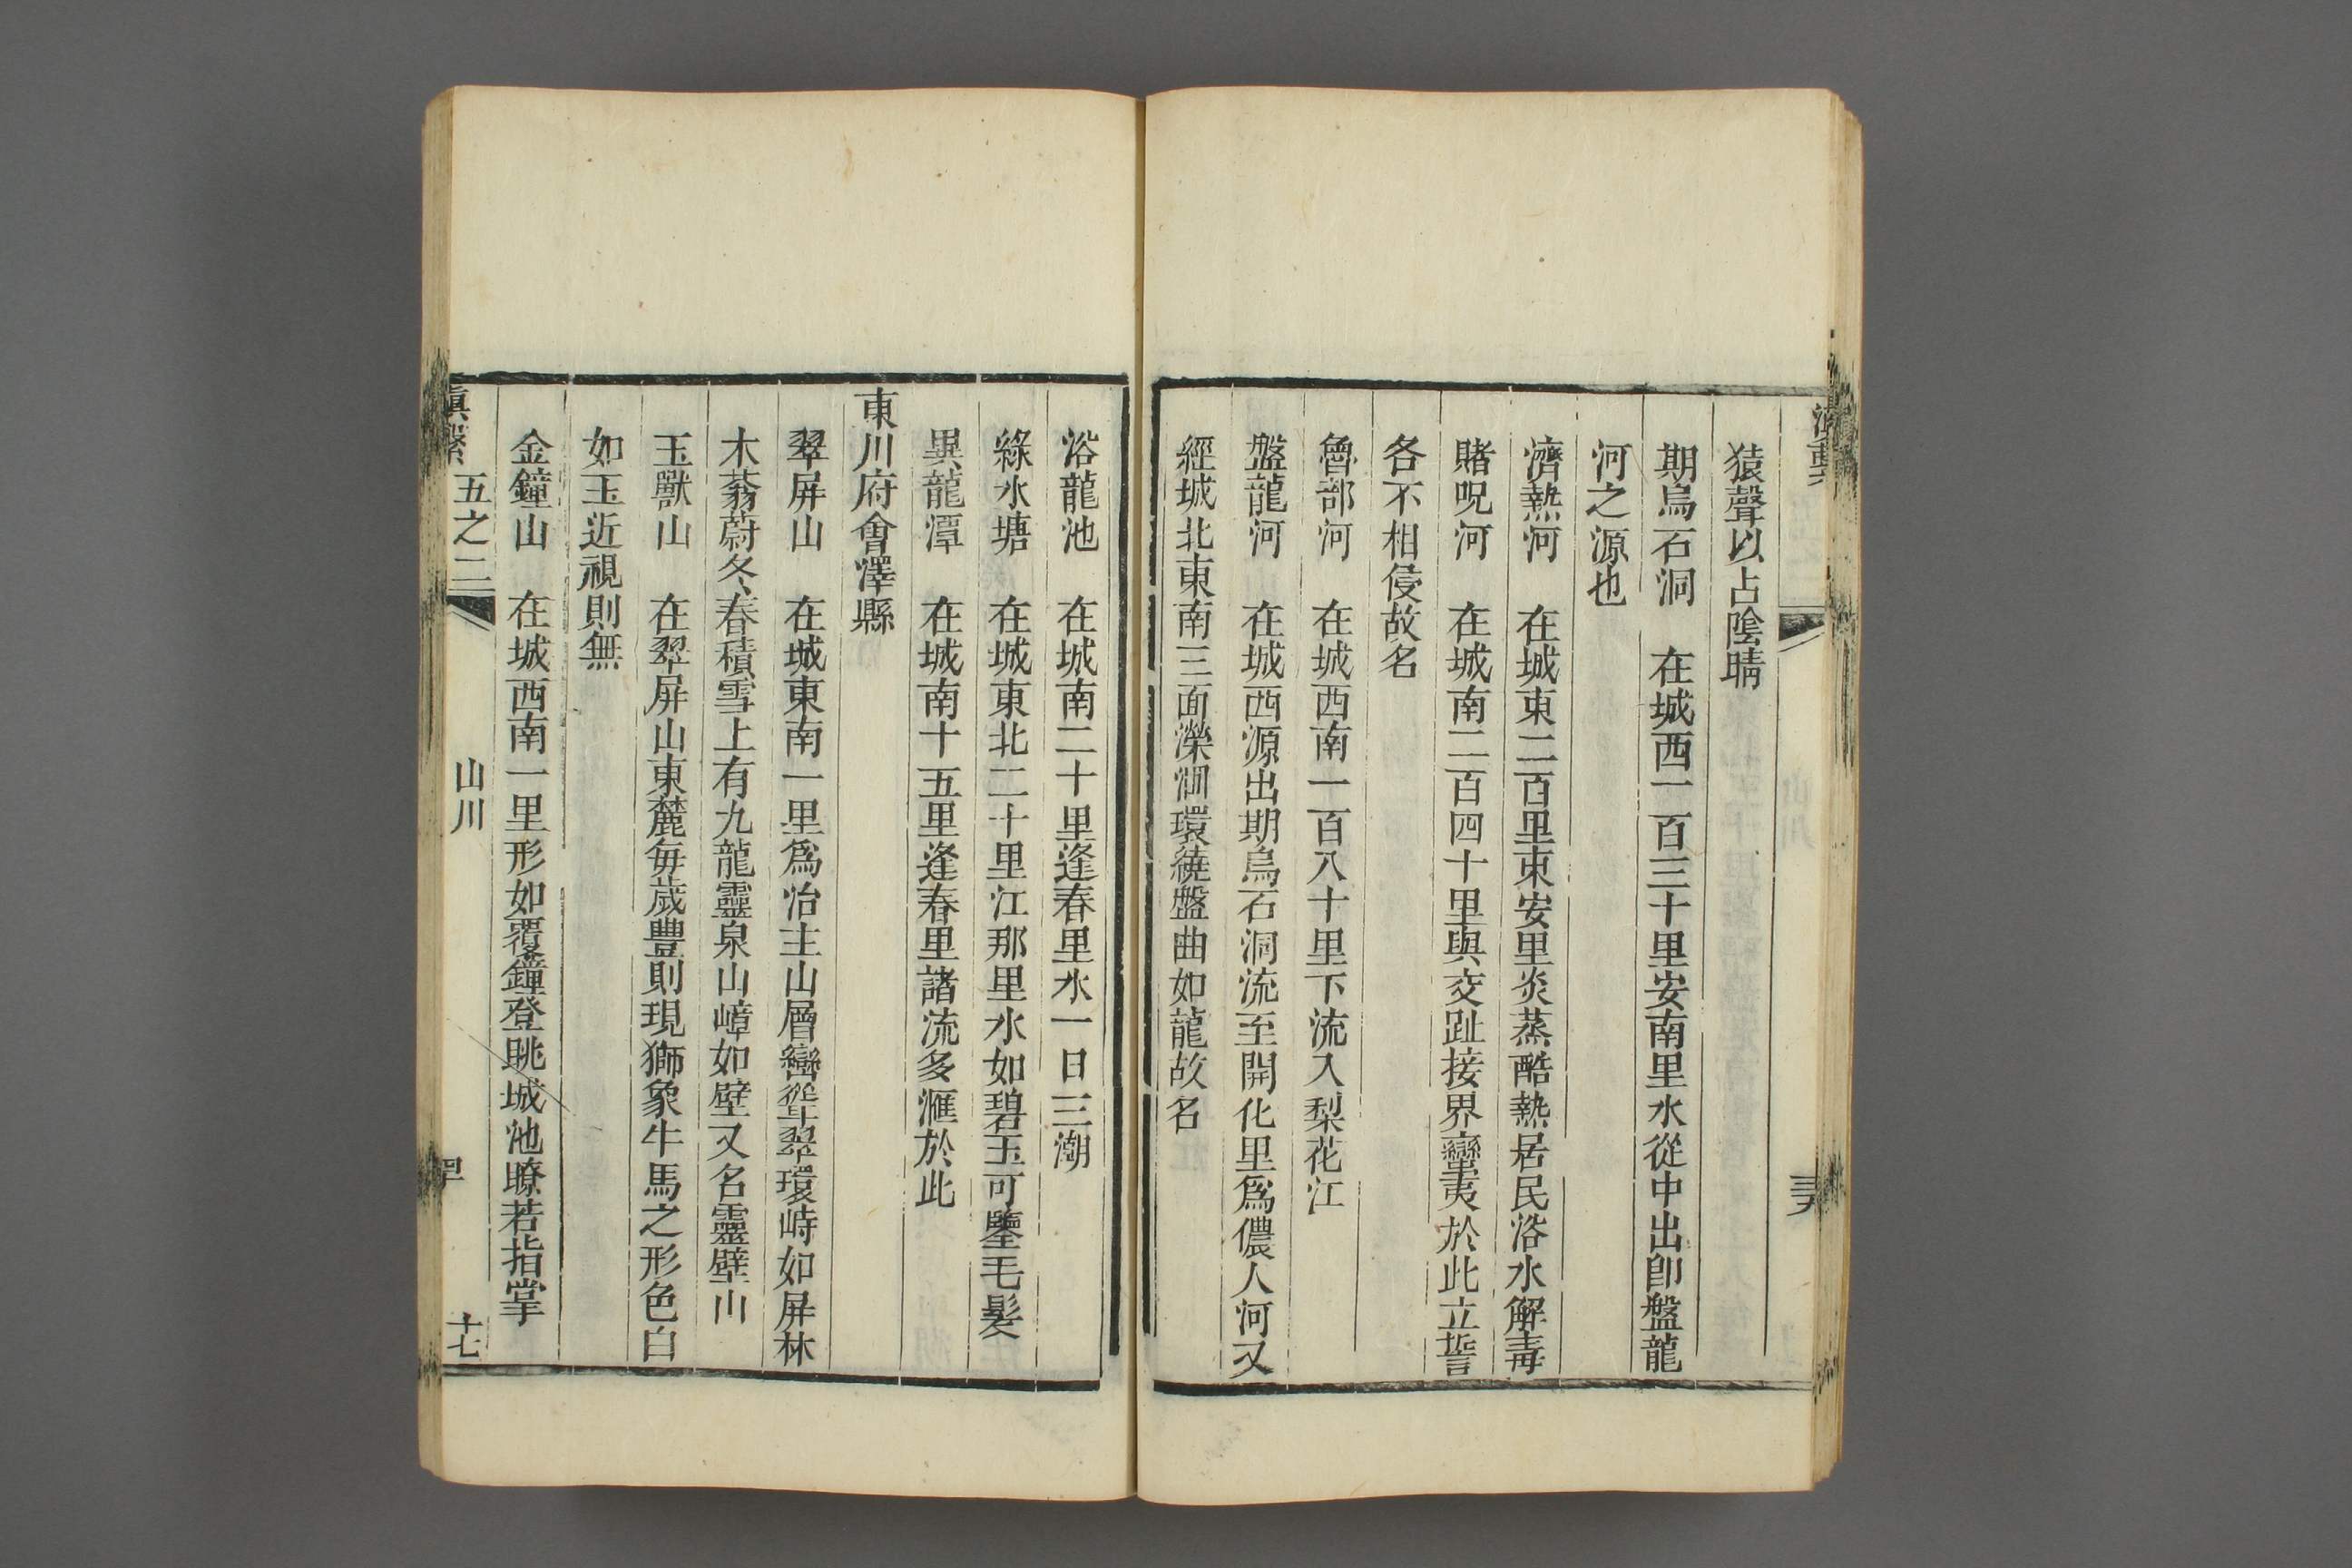 猿聲以占陰晴
期烏石洞　在城西一百三十里安南里水從中出卽盤龍
河之源也
濟熱河　在城東二百里東安里炎蒸酷熱居民浴水解毒
賭呪河　在城南二百四十里與交趾接界蠻夷於此立誓
各不相侵故名
魯部河　在城西南一百八十里下流入梨花江
盤龍河　在城西源出期烏石洞流至開化里爲儂人河又
經城北東南三面濼洄環繞盤曲如龍故名
浴龍池　在城南二十里逢春里水一日三潮
綠水塘　在城東北二十里江那里水如碧玉可鑒毛髮
異龍潭　在城南十五里逢春里諸流多滙於此
東川府會澤縣
翠屏山　在城東南一里爲治主山層巒聳翠環峙如屏林
木蓊蔚冬春積雪上有九龍靈泉山嶂如壁又名靈壁山
玉獸山　在翠屏山東麓每歲豐則現獅象牛馬之形色白
如玉近視則無
金鐘山　在城西南一里形如覆鐘登眺城池瞭若指掌
滇繫　五之二　山川　十七